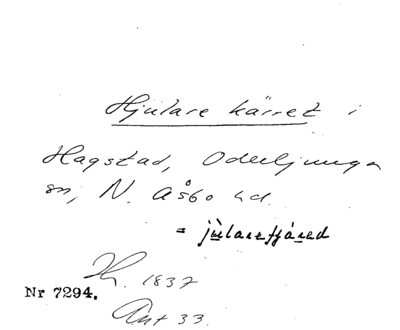 Hjulare kärret i
Hagstad, Oderljunga
sn, N. Åsbo hd.
= jùlaretjáred
1837
Nr 7294.
Ant 33.